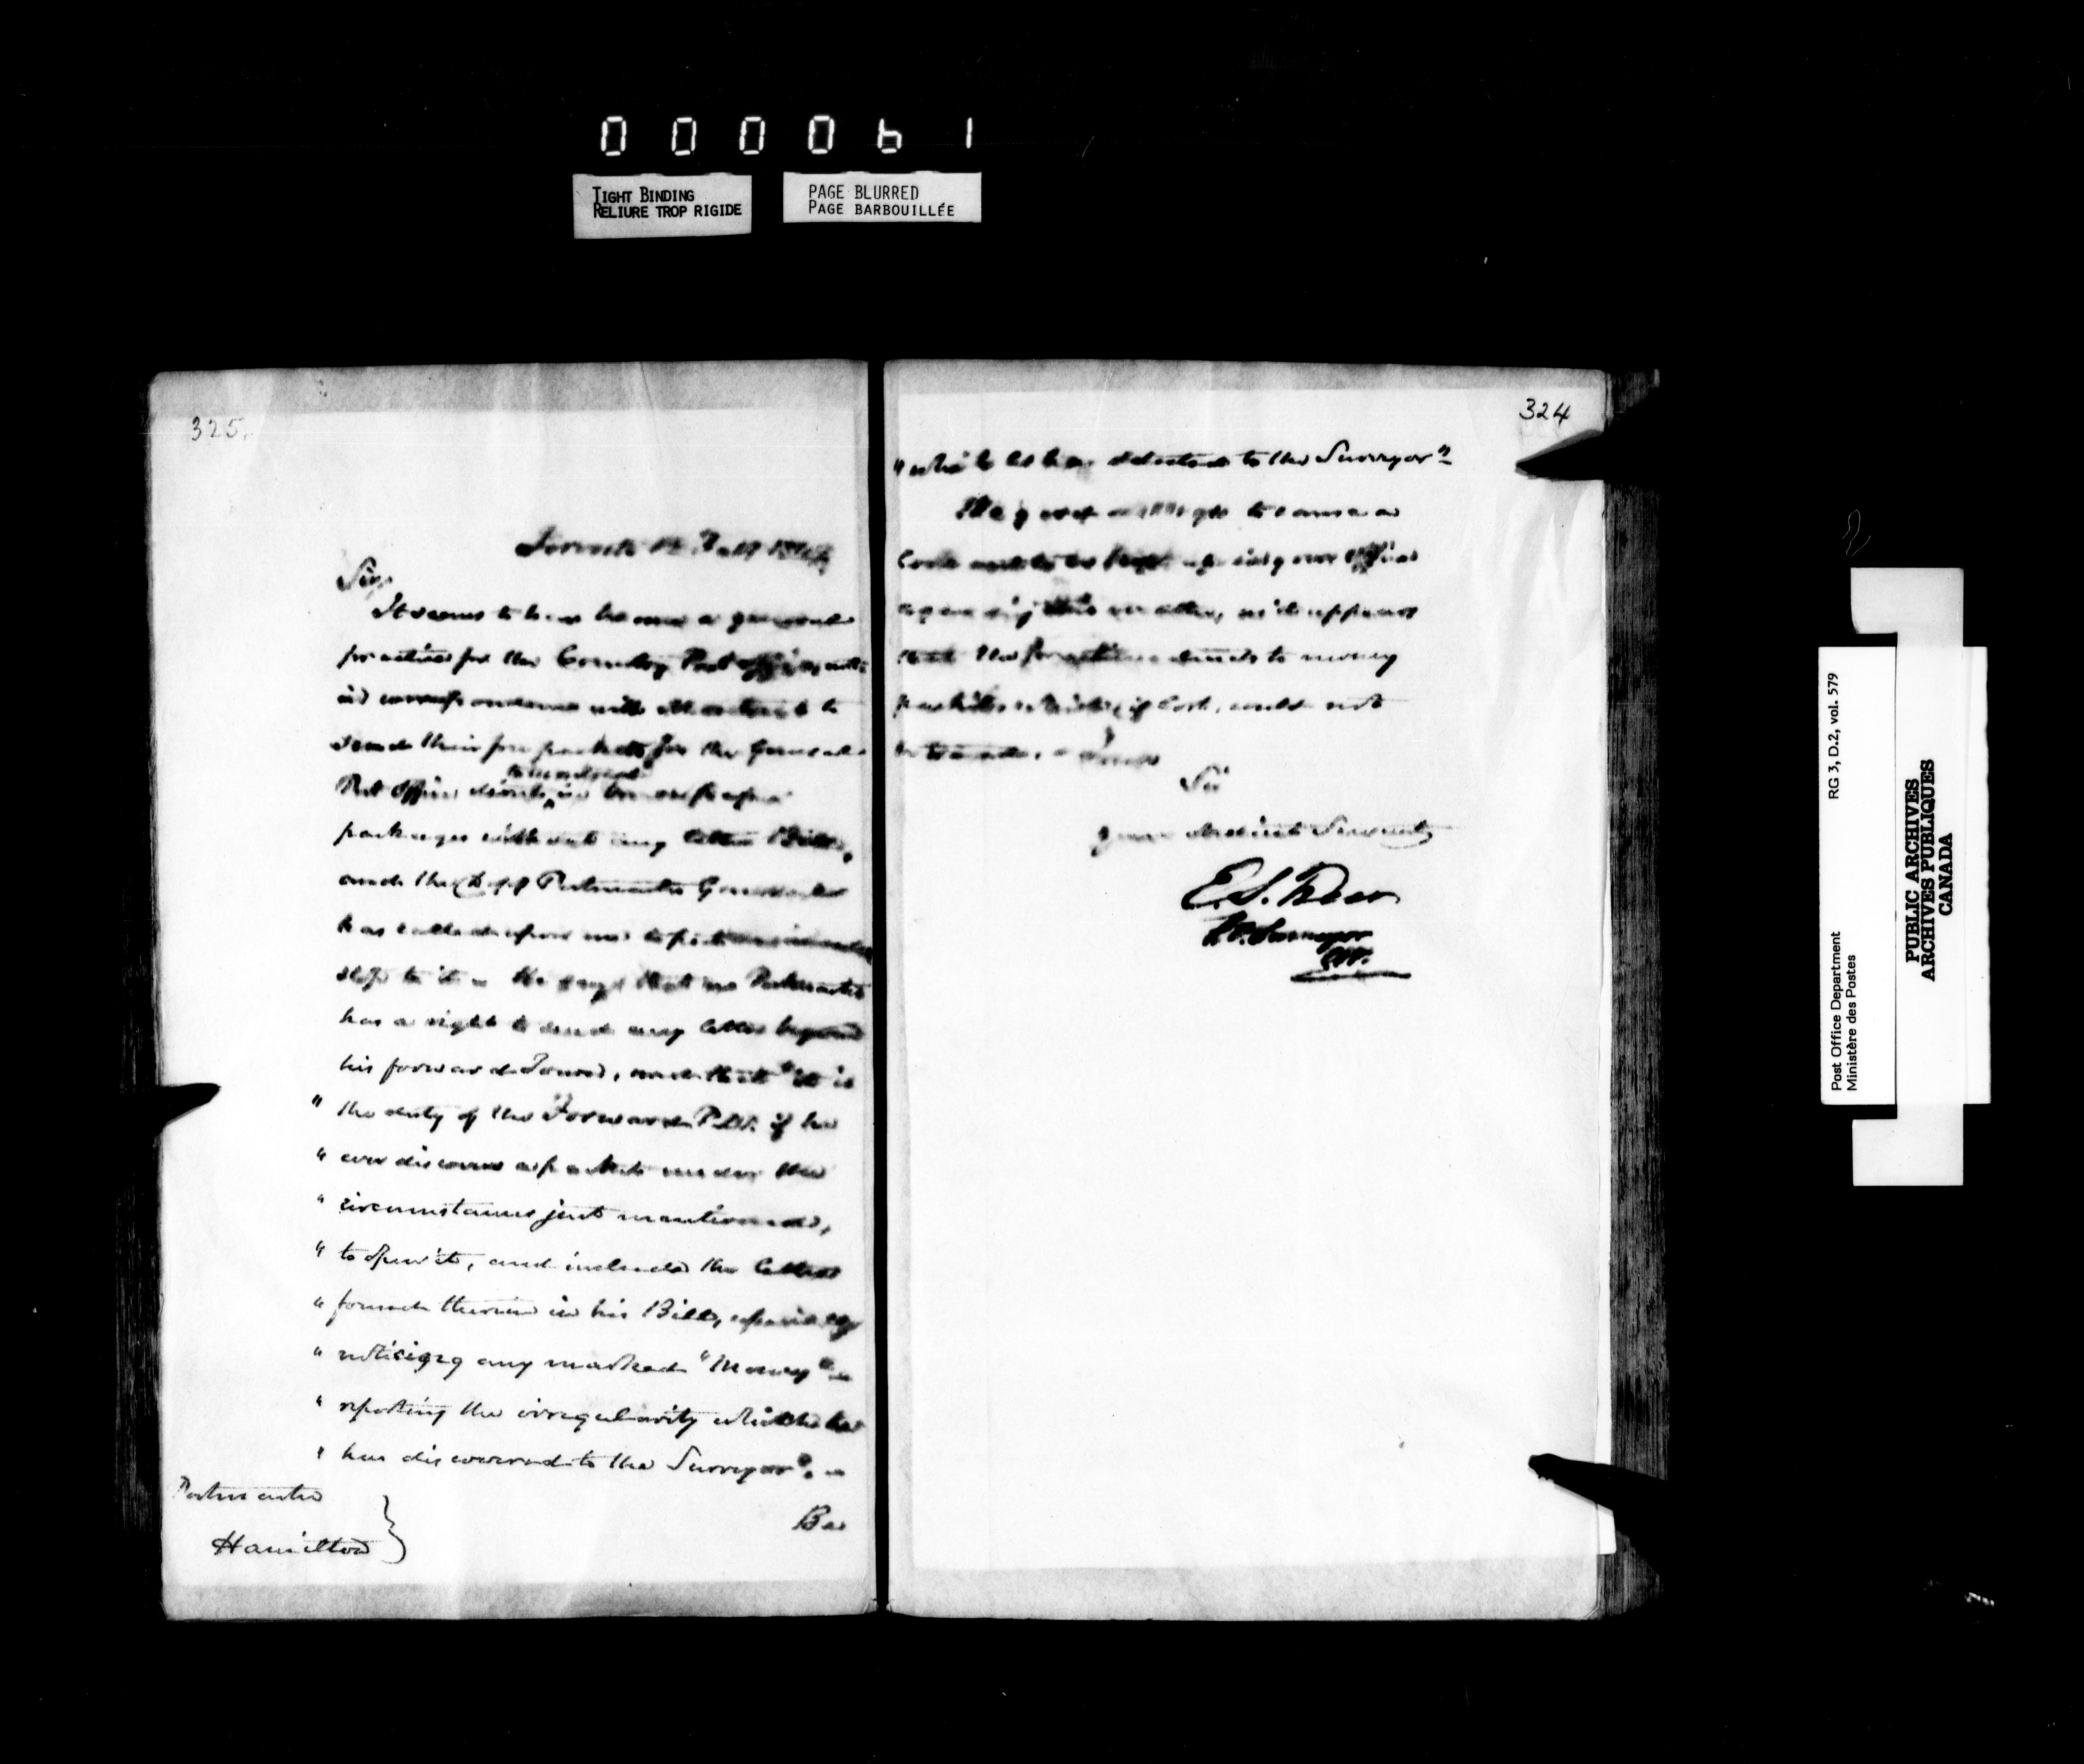 000061
TIGHT BINDING
RELIURE TROP RIGIDE
PAGE BLURRED
PAGE BARBOUILLÉE
325.
Toronto
Sir,
It seems to have become a general
practice for the Country Post offices,
in correspondence with Montreal to
send their for packets for the General
Post Office direct, in
to Montreal
packages without any letter Bills,
and the Dep Postmaster General
has called upon me to put
stop to it. He says that no Postmaster
has a right to send any letter beyond
his forward Town, and that "it is
" the duty of the Forward P.M. if he
" ever discovers a packet under the
" circumstances just mentioned,
" to open it, and include the letters
" found therein in his Bill, especially
" noticing any marked "Money"
" reporting the irregularity which he
" has discovered to the Surveyor".
Postmaster
Hamilton
Be
324
" which he has detected to the Surveyor"
to cause a
look out to be kept in your office
regarding this matter, as it appears
that the practice extends to money
packets which, if lost, could not
be traced.
Sir
Your obedient Servant
E. S.
P.O. Surveyor
RG 3, D.2, vol. 579
Post Office Department
Ministère des Postes
PUBLIC ARCHIVES
ARCHIVES PUBLIQUES
CANADA